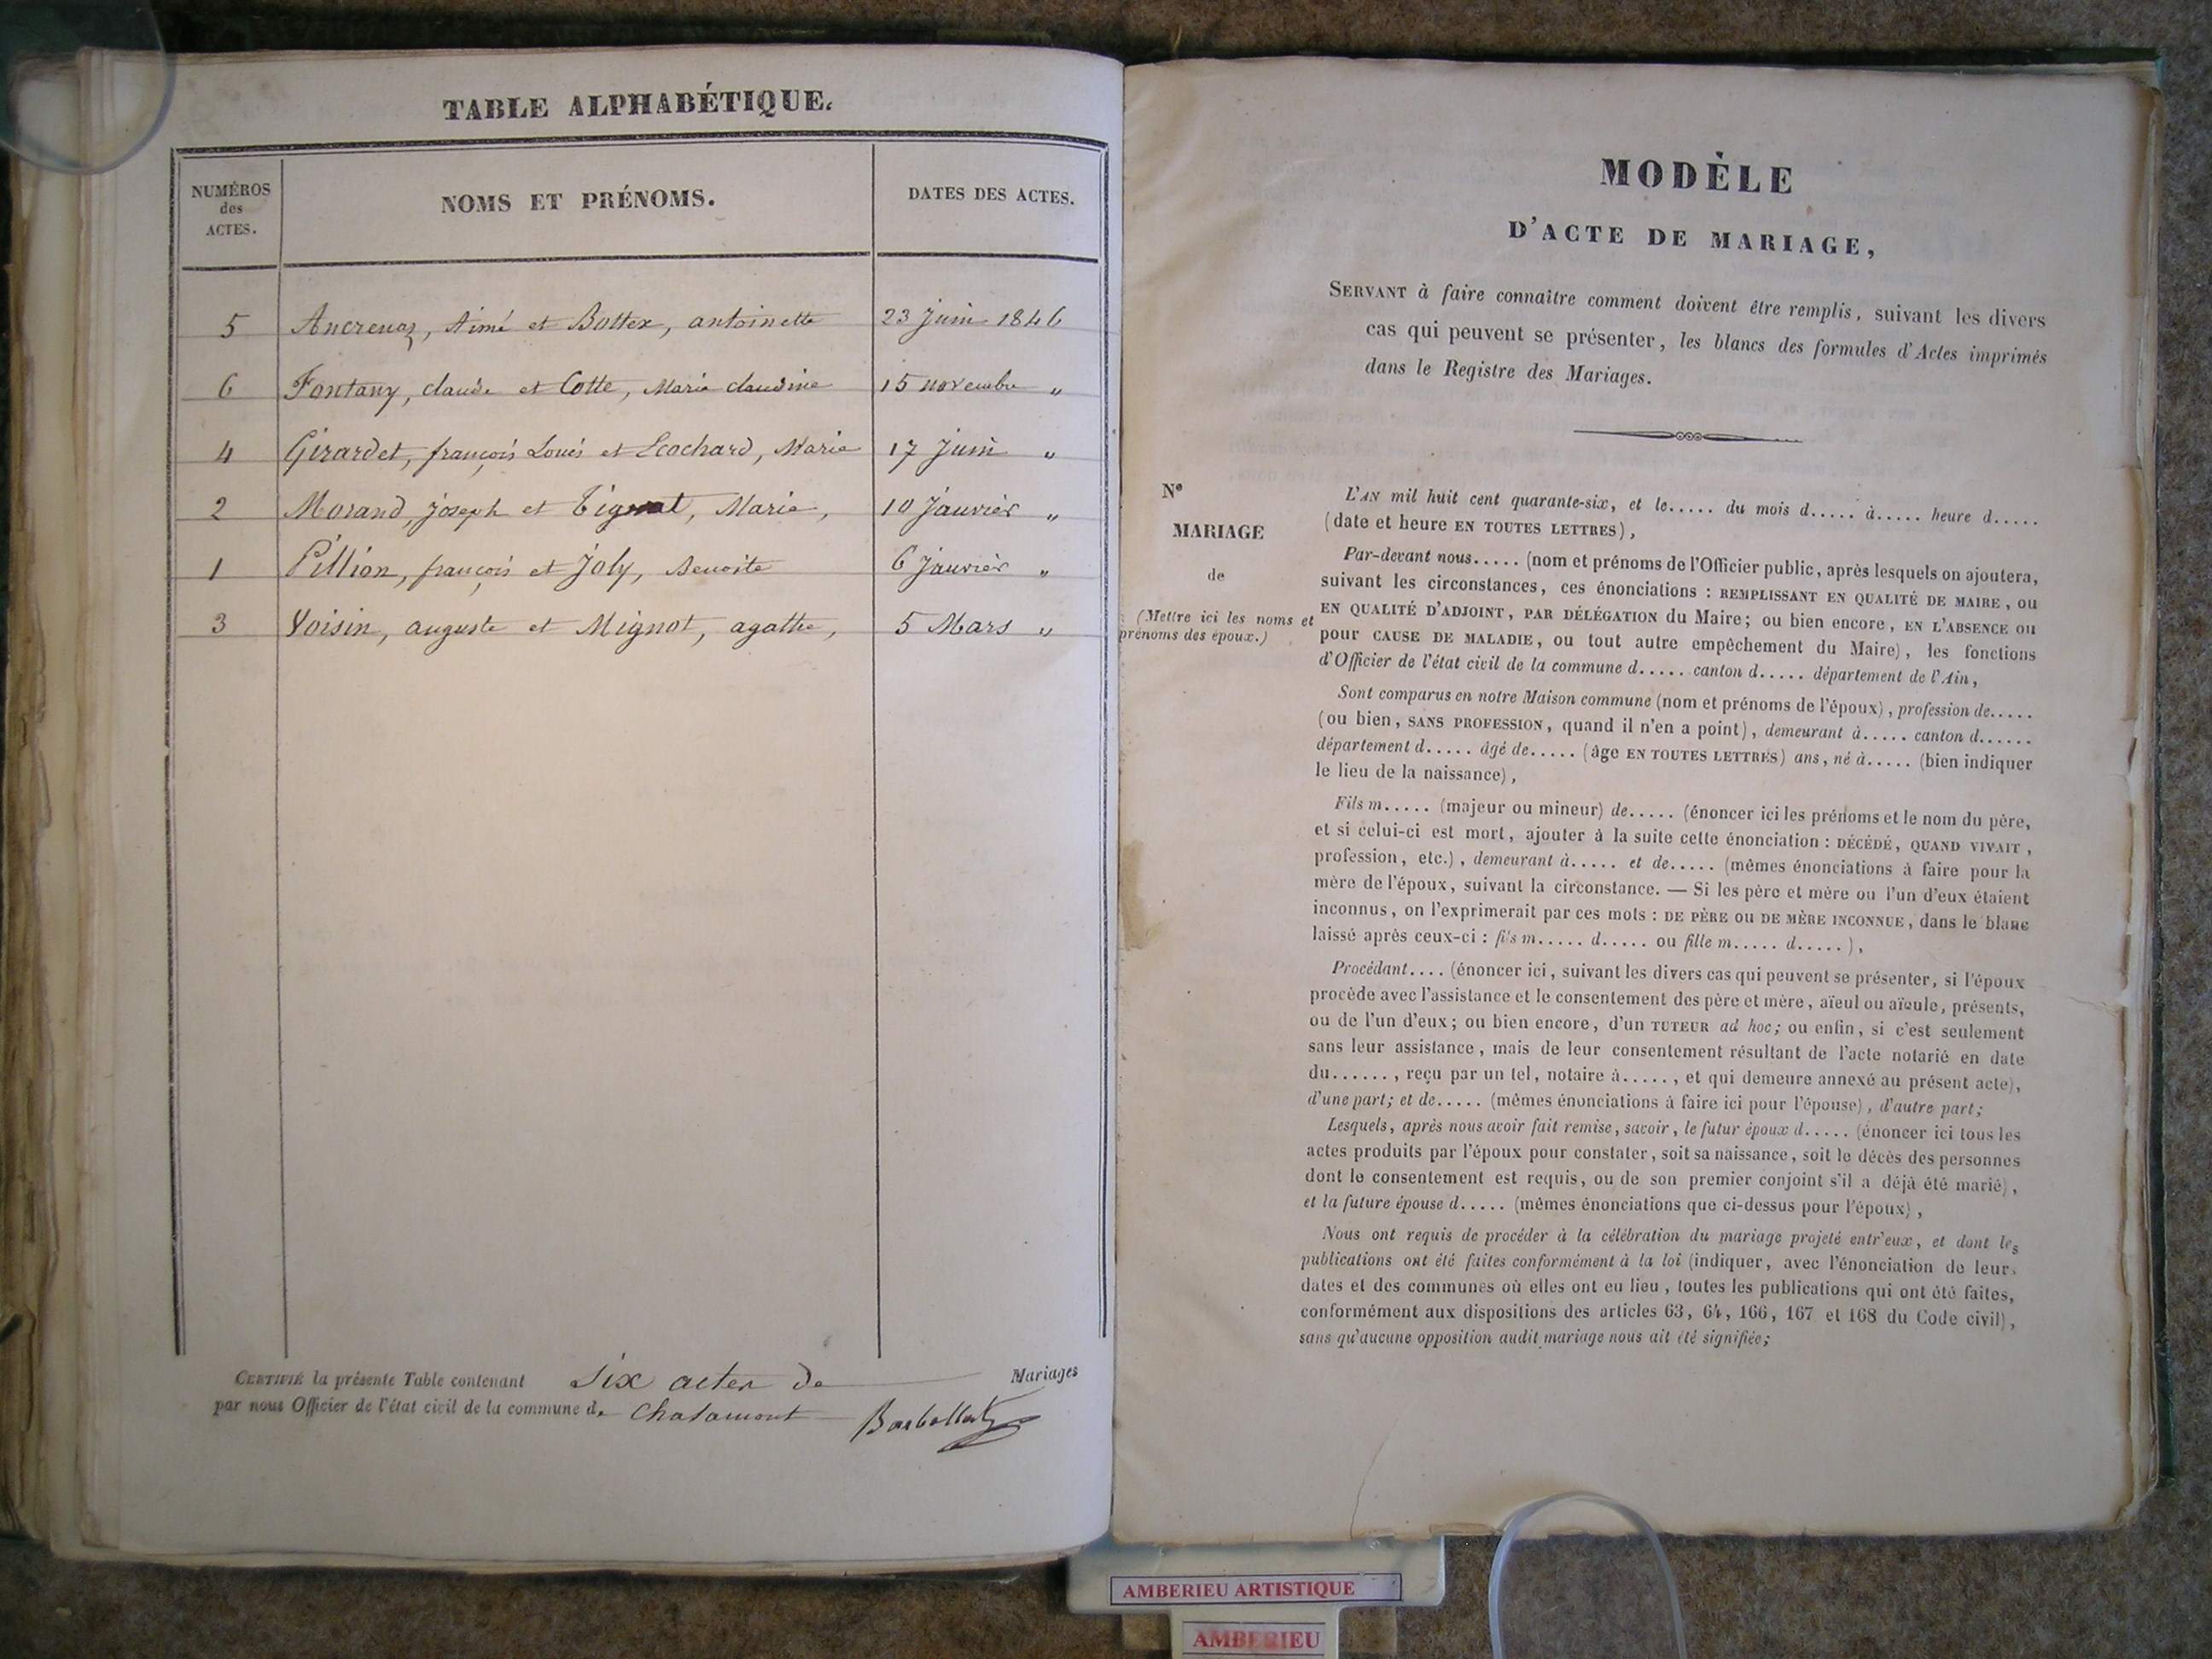 TABLE ALPHABÉTIQUE.
NUMÉROS
des
ACTES.
NOMS ET PRÉNOMS.
DATES DES ACTES.
5 Ancrenaz, Aimé et Bottex, antoinette 23 Juin 1846
6 Fontany, claude et Cotte, Marie claudine 15 novembre "
4 Girardet, françois Louis et Ecochard, Marie 17 Juin "
2 Morand, joseph et Marie, 10 Janvier "
1 Pillion, françois et Joly, Benoite 6 Janvier "
3 Voisin, auguste et Mignot, agathe, 5 Mars "
CERTIFIÉ la présente Table contenant six actes de Mariages
par nous Officier de l'état civil de la commune de Chalamont
MODÈLE
D'ACTE DE MARIAGE,
SERVANT à faire connaître comment doivent être remplis, suivant les divers
cas qui peuvent se présenter, les blancs des formules d'Actes imprimés
dans le Registre des Mariages.
N°
MARIAGE
de
(Mettre ici les noms et
prénoms des époux.)
L'AN mil huit cent quarante-six, et le..... du mois d..... à..... heure d.....
(date et heure EN TOUTES LETTRES),
Par-devant nous..... (nom et prénoms de l'Officier public, après lesquels on ajoutera,
suivant les circonstances, ces énonciations : REMPLISSANT EN QUALITÉ DE MAIRE, ou
EN QUALITÉ D'ADJOINT, PAR DÉLÉGATION du Maire; ou bien encore, EN L'ABSENCE OU
pour CAUSE DE MALADIE, ou tout autre empêchement du Maire), les fonctions
d'Officier de l'état civil de la commune d..... canton d..... département de l'Ain,
Sont comparus en notre Maison commune (nom et prénoms de l'époux), profession de.....
(ou bien, SANS PROFESSION, quand il n'en a point), demeurant à..... canton d......
département d..... âgé de..... (âge EN TOUTES LETTRES) ans, né à..... (bien indiquer
le lieu de la naissance),
Fils m..... (majeur ou mineur) de..... (énoncer ici les prénoms et le nom du père,
et si celui-ci est mort, ajouter à la suite cette énonciation : DÉCÉDÉ, QUAND VIVAIT,
profession, etc.), demeurant à..... et de..... (mêmes énonciations à faire pour la
mère de l'époux, suivant la circonstance. — Si les père et mère ou l'un d'eux étaient
inconnus, on l'exprimerait par ces mots : DE PÈRE OU DE MÈRE INCONNUE, dans le blanc
laissé après ceux-ci : fils m..... d..... ou fille m..... d.....),
Procédant.... (énoncer ici, suivant les divers cas qui peuvent se présenter, si l'époux
procède avec l'assistance et le consentement des père et mère, aïeul ou aïeule, présents,
ou de l'un d'eux; ou bien encore, d'un TUTEUR ad hoc; ou enfin, si c'est seulement
sans leur assistance, mais de leur consentement résultant de l'acte notarié en date
du......, reçu par un tel, notaire à....., et qui demeure annexé au présent acte),
d'une part; et de..... (mêmes énonciations à faire ici pour l'épouse), d'autre part;
Lesquels, après nous avoir fait remise, savoir, le futur époux d..... (énoncer ici tous les
actes produits par l'époux pour constater, soit sa naissance, soit le décès des personnes
dont le consentement est requis, ou de son premier conjoint s'il a déjà été marié),
et la future épouse d..... (mêmes énonciations que ci-dessus pour l'époux),
Nous ont requis de procéder à la célébration du mariage projeté entr'eux, et dont les
publications ont été faites conformément à la loi (indiquer, avec l'énonciation de leurs
dates et des communes où elles ont eu lieu, toutes les publications qui ont été faites,
conformément aux dispositions des articles 63, 64, 166, 167 et 168 du Code civil),
sans qu'aucune opposition audit mariage nous ait été signifiée;
AMBERIEU ARTISTIQUE
AMBERIEU